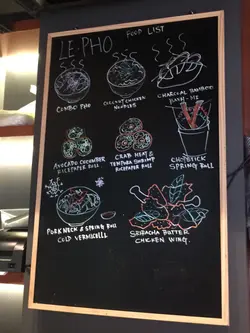 LE-PHO FOOD LIST
COMBO PHO
COCONUT CHICKEN
NOODLES
CHARCOAL BAMBOO
BANH-MI
AVOCADO CUCUMBER
RICEPAPER ROLL
CRAB MEAT &
TEMPURA SHRIMP
RICEPAPER ROLL
CHOPSTICK
SPRING ROLL
PORK NECK & SPRING ROLL
COLD VERMICELLI
SRIRACHA BUTTER
CHICKEN WING.